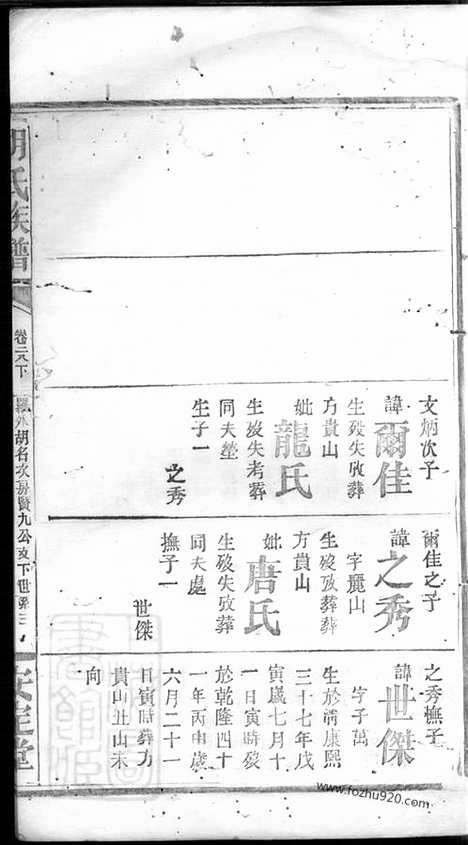 文炳次子
諱爾佳
生歿失攷葬
方貴山
妣龍氏
生歿失考葬
同夫塋
生子一
之秀
爾佳之子
諱之秀
字麗山
生歿攷葬葬
方貴山
妣唐氏
生歿失攷葬
同夫處
撫子一
世傑
之秀撫子
諱世傑
字子萬
生於清康熙
三十七年戊
寅歲七月十
一日寅時歿
於乾隆四十
一年丙申歲
六月二十一
日寅時葬方
貴山丑山未
向
胡氏族譜
卷二八下
胡名次房賢九公支下世系
安定堂
www.fozhu920.com